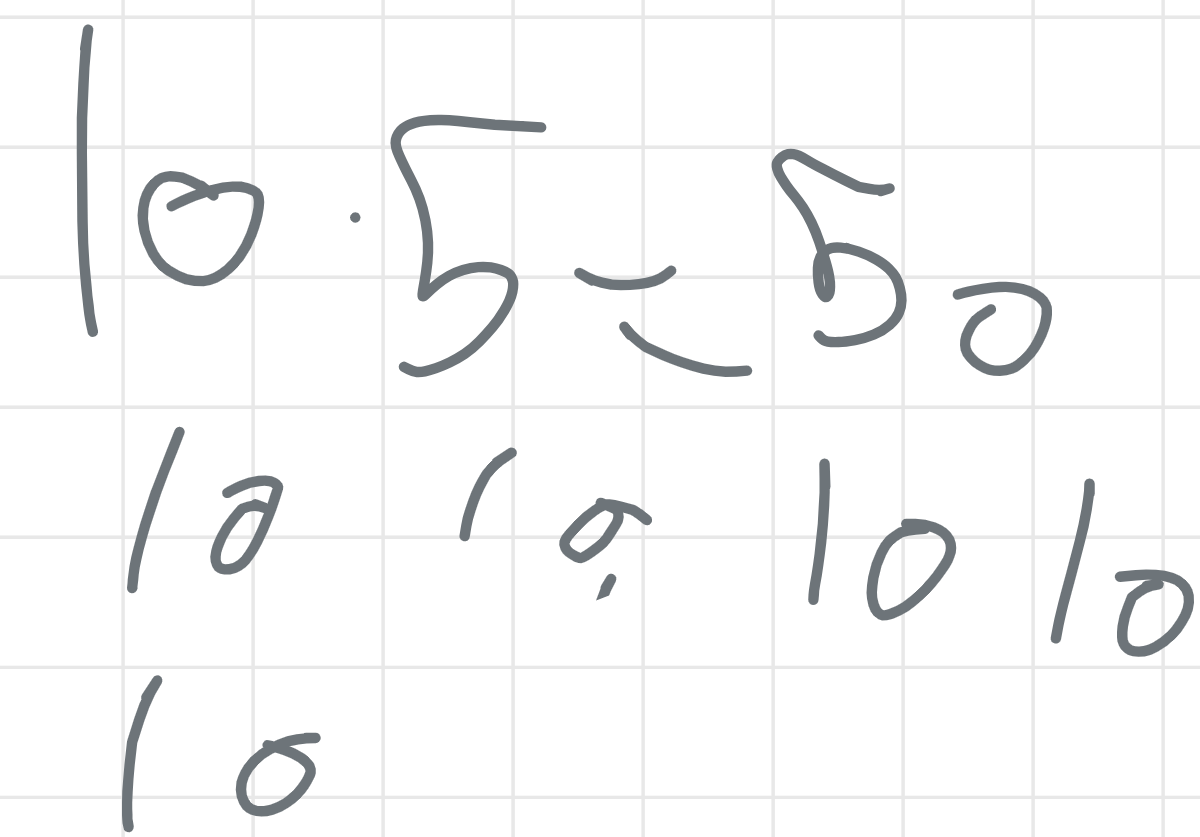 10 · 5 = 50
10 10 10 10
10